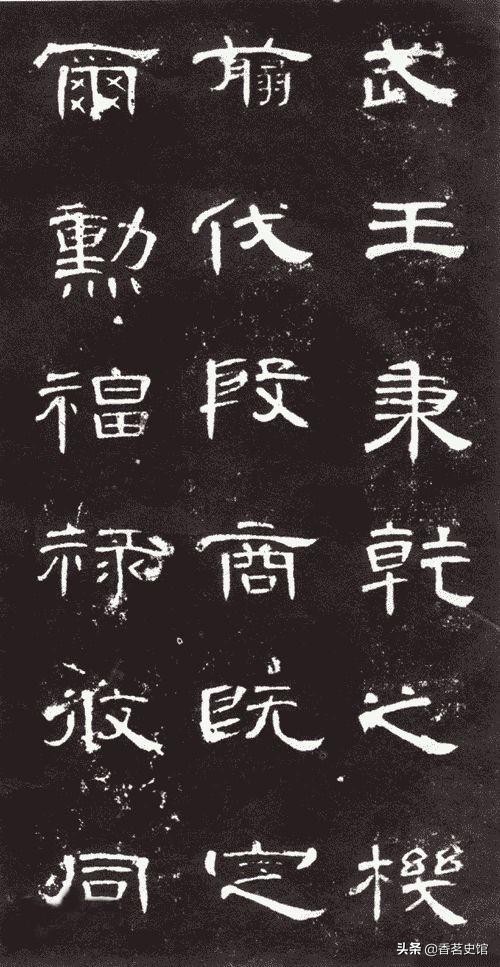 武王秉乾之機
翦伐殷商既定
爾勳福祿攸同
头条 @香茗史馆